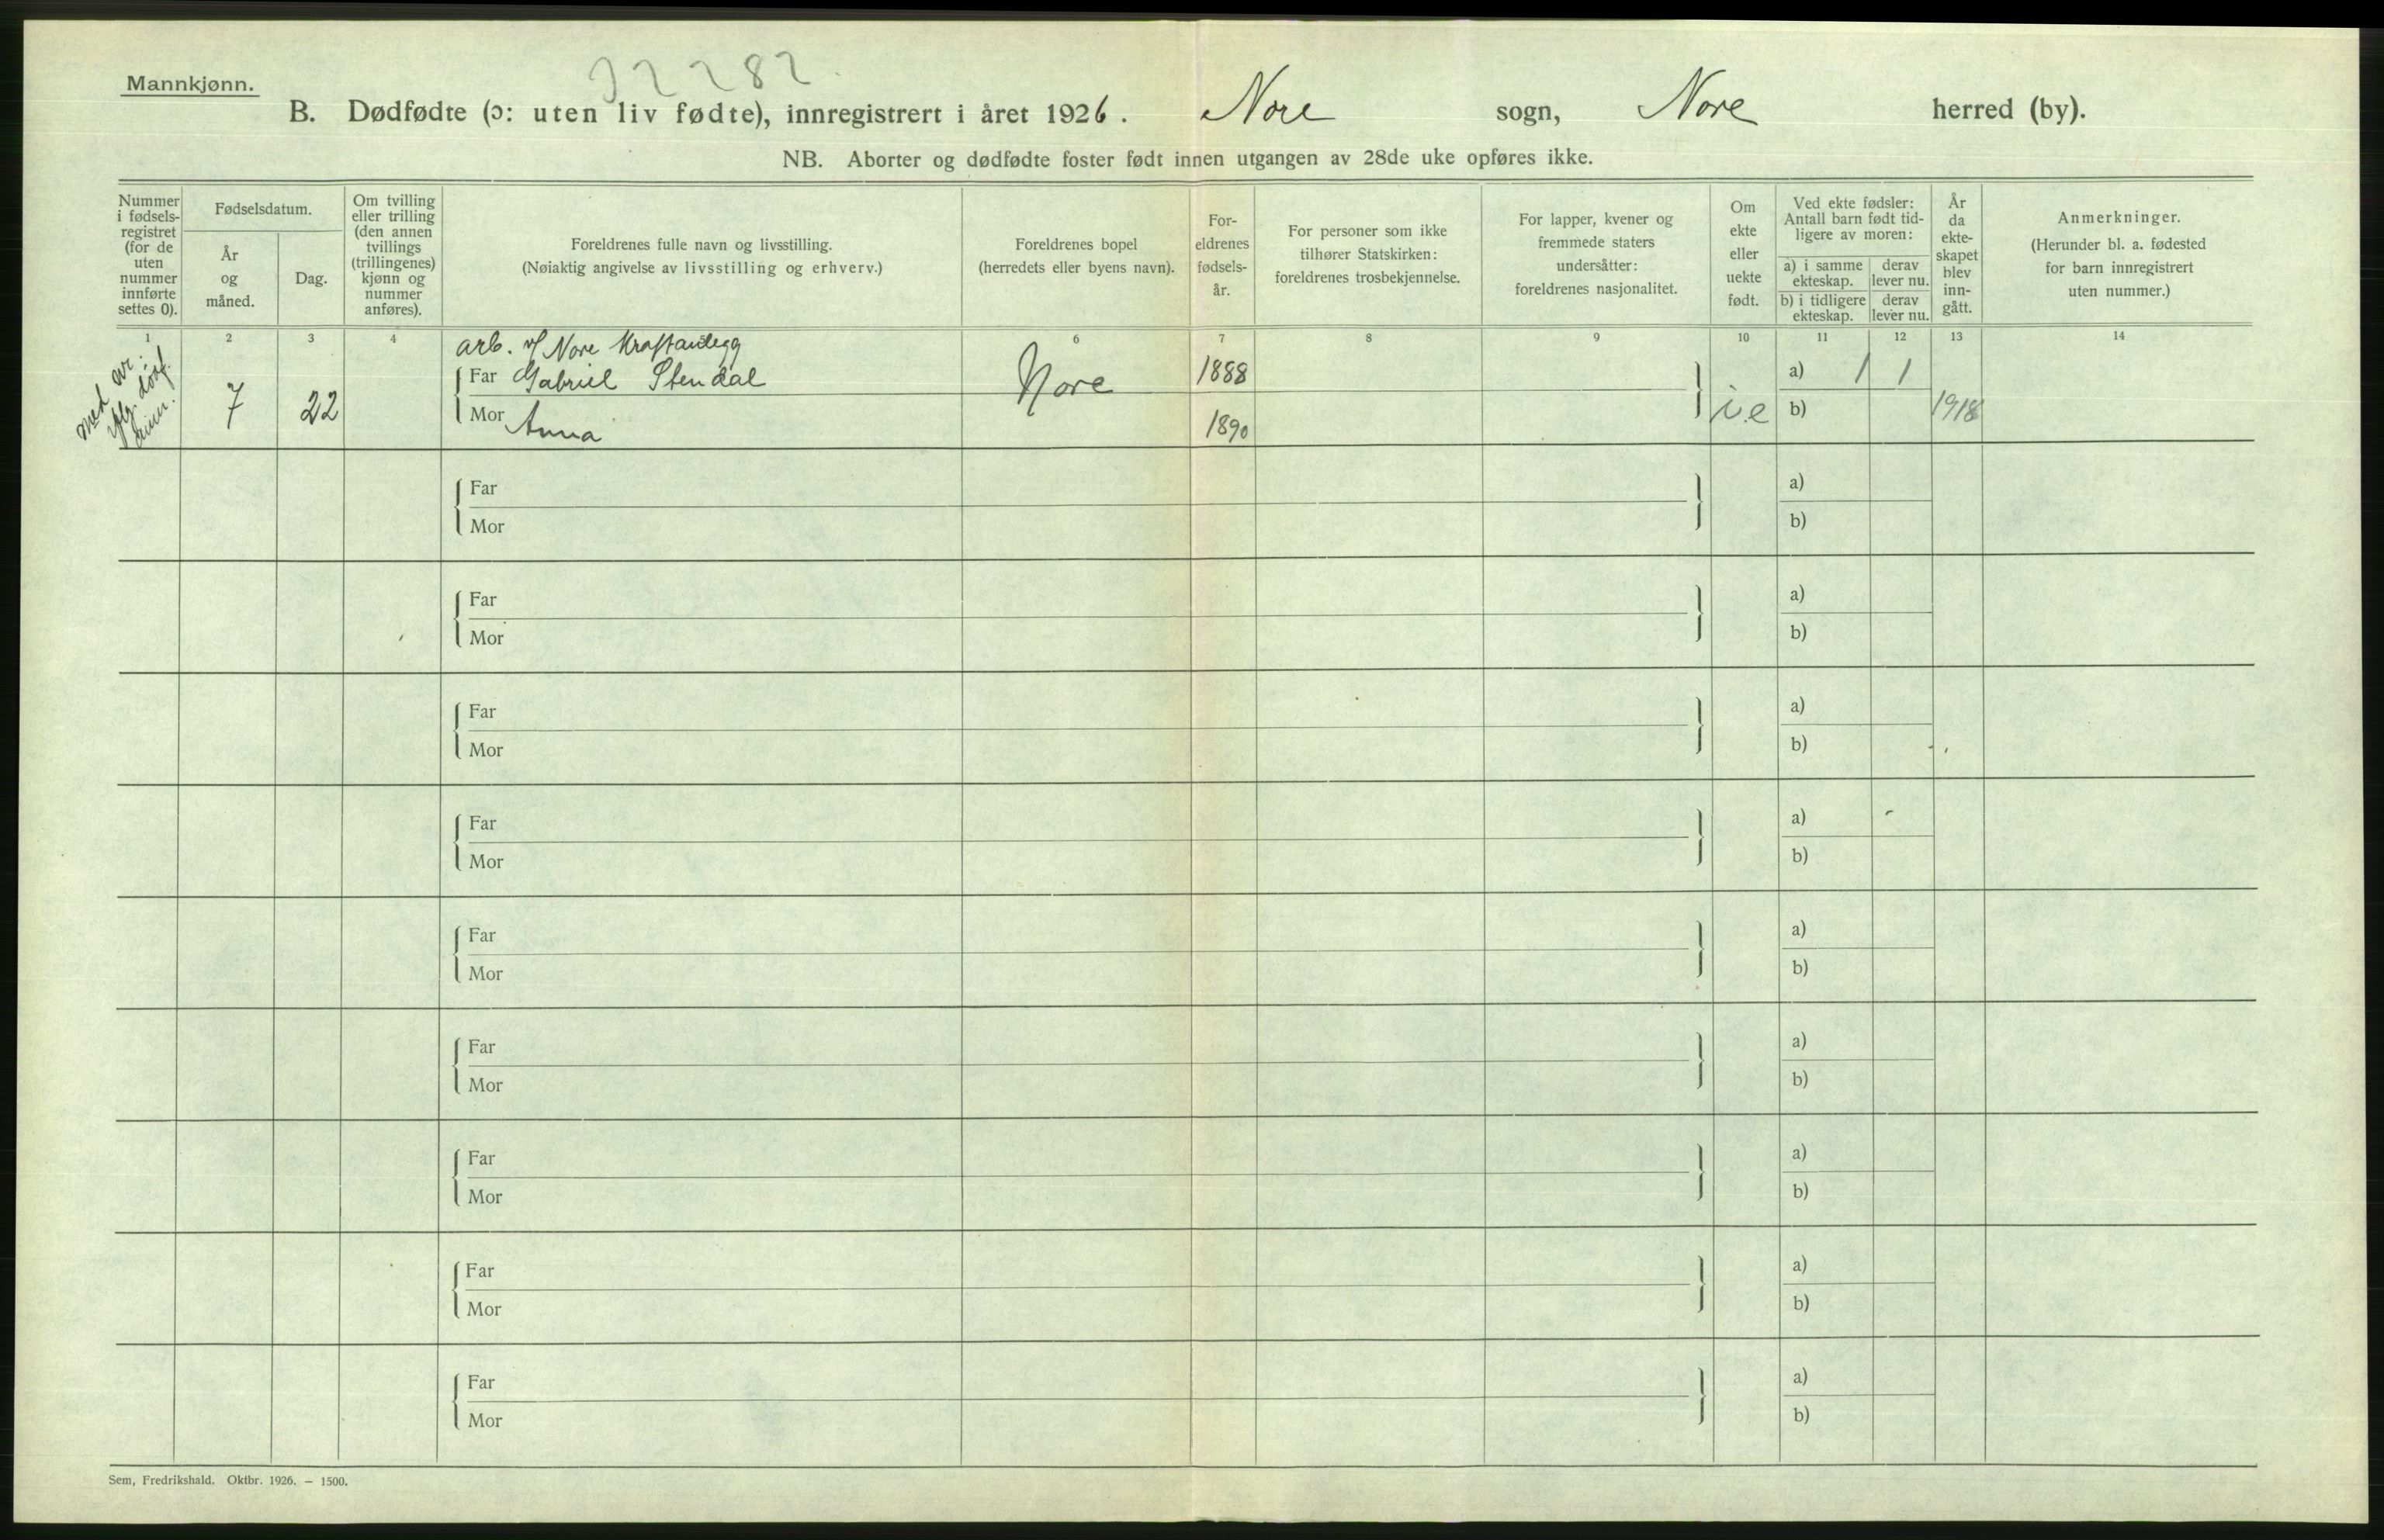 Mannkjønn.
22282
B. Dødfødte (ɔ: uten liv fødte), innregistrert i året 1926. Nore sogn, Nore herred (by).
NB. Aborter og dødfødte foster født innen utgangen av 28de uke opføres ikke.
Nummer
i fødsels-
registret
(for de
uten
nummer
innførte
settes 0).
Fødselsdatum.
År
og
måned.
Dag.
Om tvilling
eller trilling
(den annen
tvillings
(trillingenes)
kjønn og
nummer
anføres).
Foreldrenes fulle navn og livsstilling.
(Nøiaktig angivelse av livsstilling og erhverv.)
Foreldrenes bopel
(herredets eller byens navn).
For-
eldrenes
fødsels-
år.
For personer som ikke
tilhører Statskirken:
foreldrenes trosbekjennelse.
For lapper, kvener og
fremmede staters
undersåtter:
foreldrenes nasjonalitet.
Om
ekte
eller
uekte
født.
Ved ekte fødsler:
Antall barn født tid-
ligere av moren:
a) i samme
ekteskap.
derav
lever nu.
b) i tidligere
ekteskap.
derav
lever nu.
År
da
ekte-
skapet
blev
inn-
gått.
Anmerkninger.
(Herunder bl. a. fødested
for barn innregistrert
uten nummer.)
1 2 3 4 6 7 8 9 10 11 12 13 14
med
7 22
arb. v/ Nore Kraftanlegg
Far Gabriel Stendal
Mor Anna
Nore
1888
1890
i.e
a) 1 1
b)
1918
Far a)
Mor b)
Far a)
Mor b)
Far a)
Mor b)
Far a)
Mor b)
Far a)
Mor b)
Far a)
Mor b)
Far a)
Mor b)
Far a)
Mor b)
Far a)
Mor b)
Sem, Fredrikshald. Oktbr. 1926. — 1500.